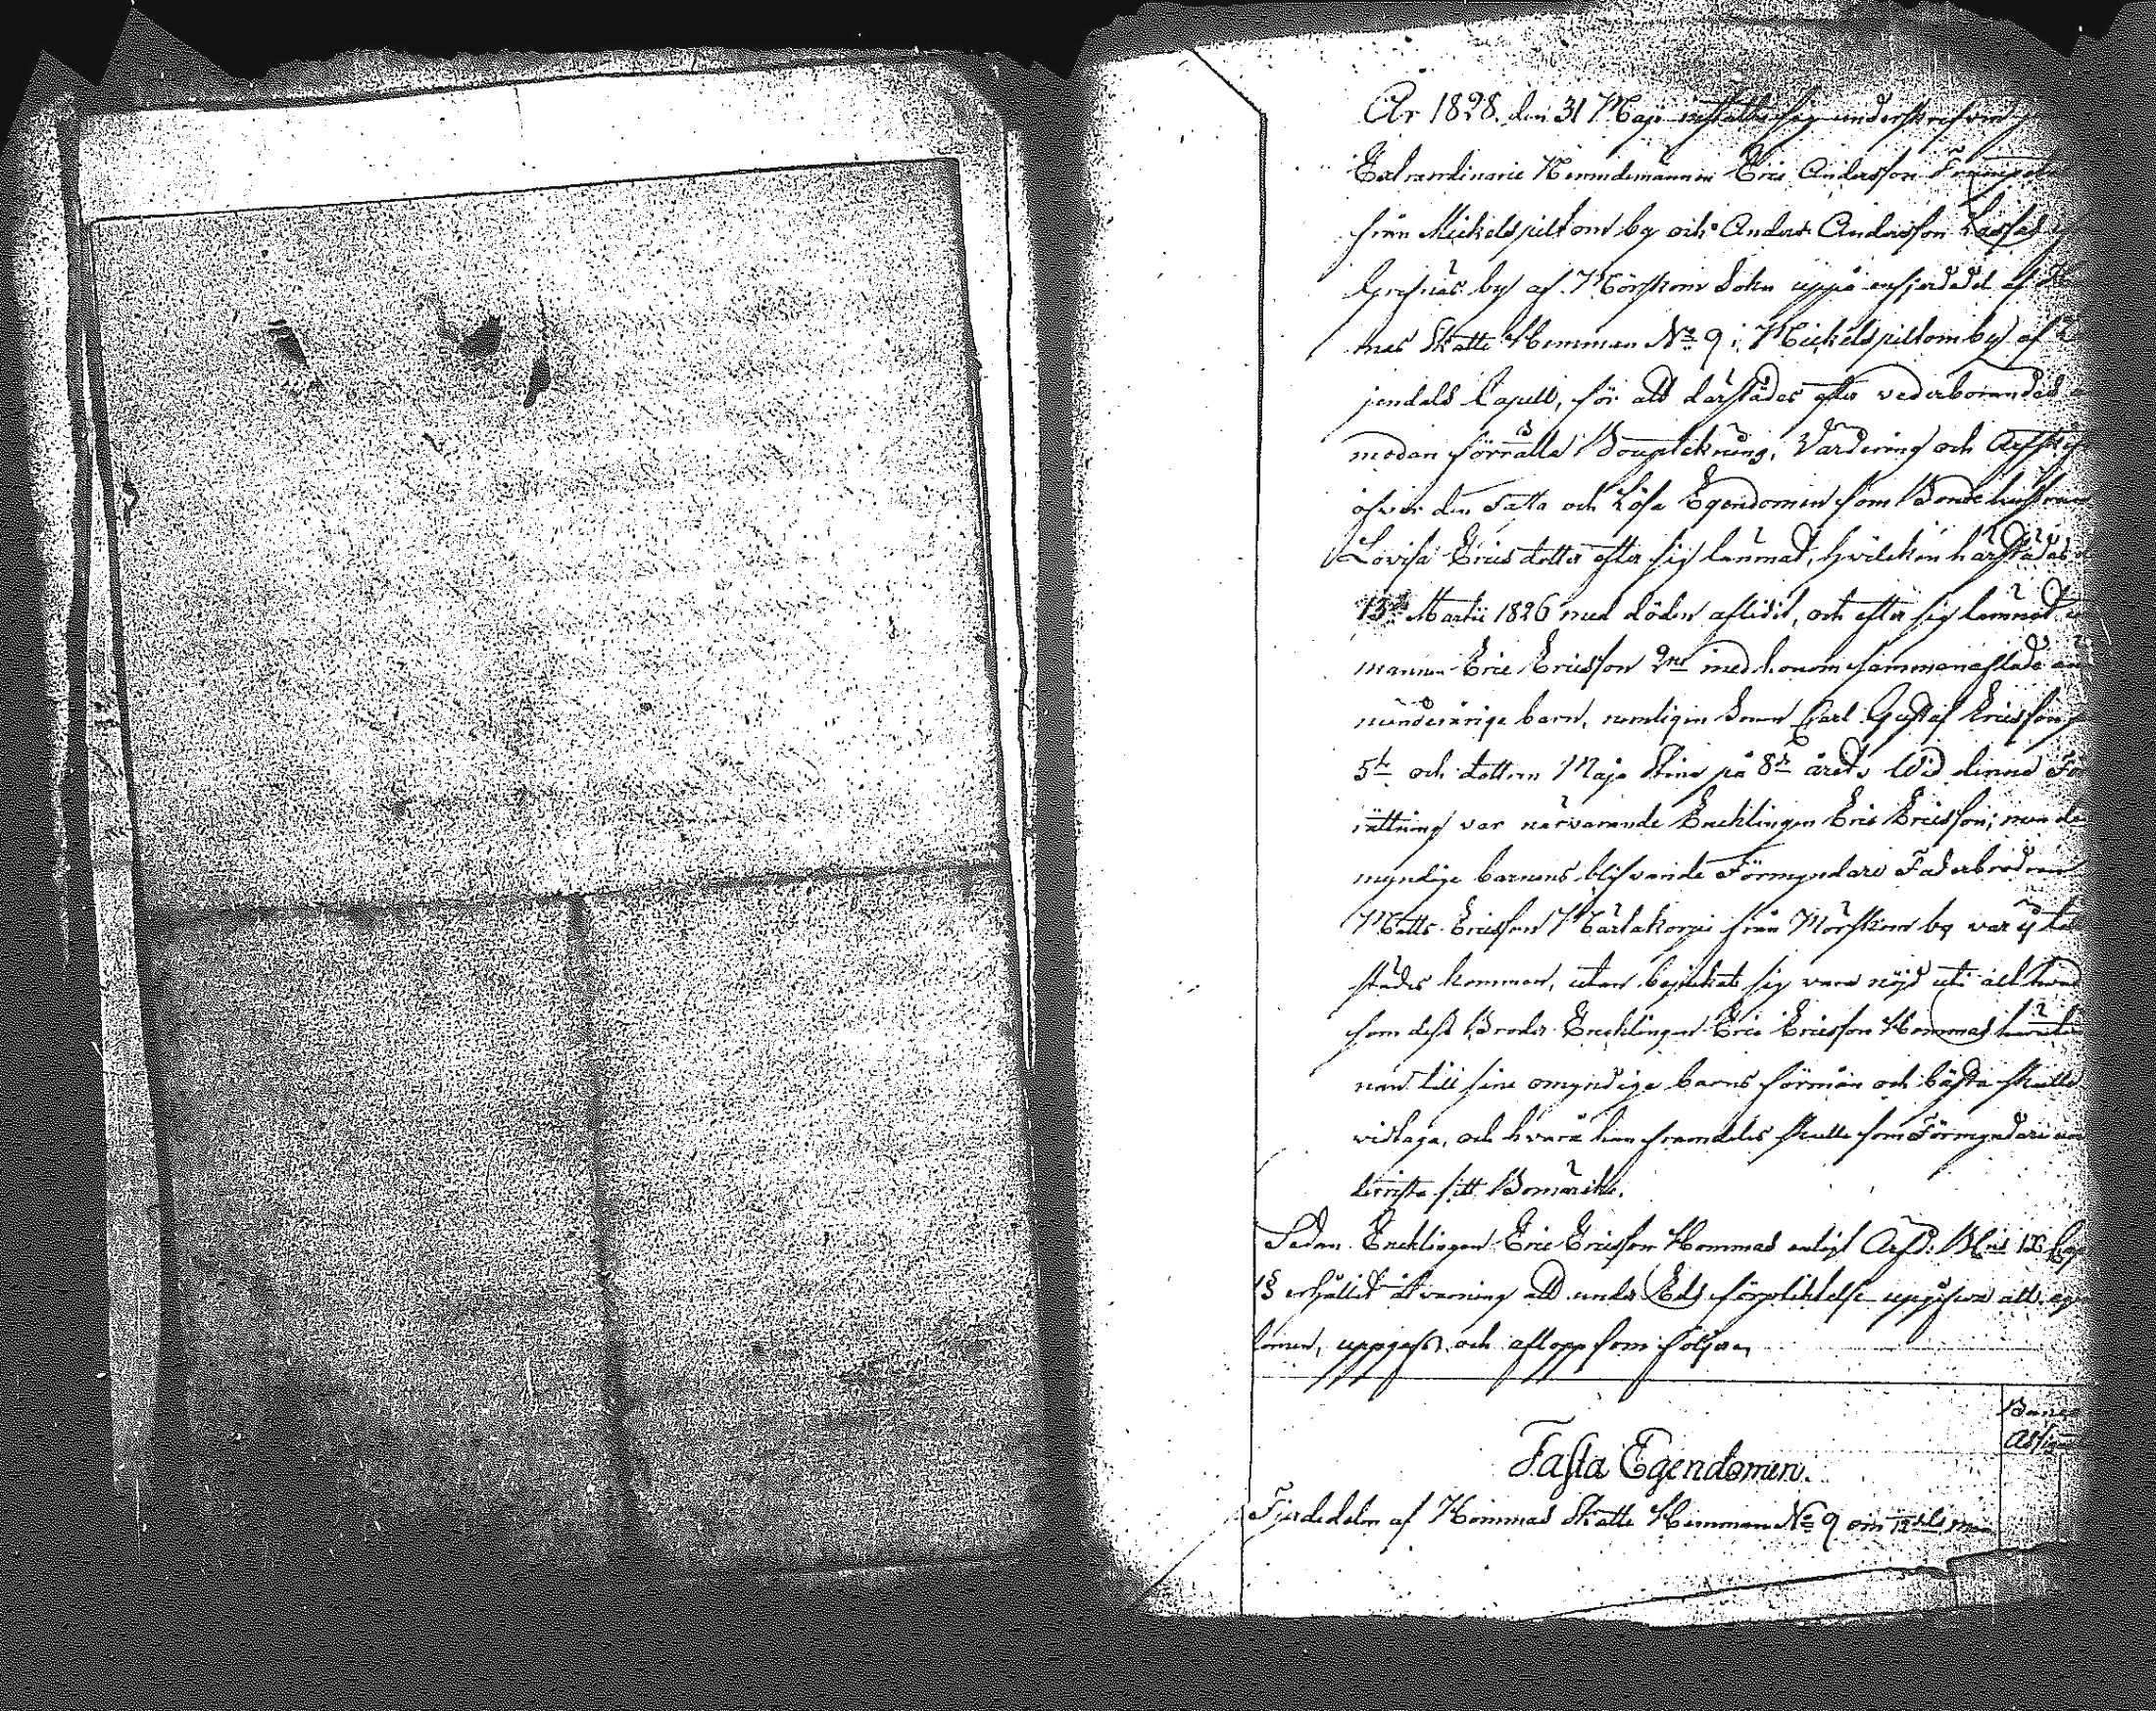 År 1828. den 31 Maji inställte sig underskrefvne
Extraordinarie Nemndemännen Eric Andersson
från Mickelspiltom by och Anders Andersson Lassas
Grefnäs by af Mörskom Sokn uppå en fjerdedel af
mas Skatte Hemman No 9 i Mickelspiltom by af
jendals Capell, för att därstädes efter vederborandes
modan förrätta Bouptekning, Värdering och Arfskif
öfver den Fasta och Lösa Egendomen som Bonde hustrun
Lovisa Ericsdotter efter sig lämnat, hvilcken härstädes
13de Martii 1826 med döden aflidit, och efter sig lemnat
mannen Eric Ericsson med honom sammanaflade
minderårige barn, nemligen Sonen Carl Gustaf Ericsson
5te och dottern Maja Stina på 8de året. Wid denna För
rättning var närvarande Encklingen Eric Ericsson; men de
myndige barnens blifvande Förmyndare Faderbrodren
Matts Ericsson Märtakorpi från Mörskom by var ej till
städes kommen, utan begickat sig vara nöjd uti alt hvad
som dess Broder Encklingen Eric Ericsson Hommas
nan till sine omyndige barns förmån och bästa skulle
vidtaga, och hvarå han framdeles skulle som Förmyndare
teckna sitt Bomärcke.
Sedan Encklingen Eric Ericsson Hommas enligt Ärfd: B:
1§ erhållit åtvarning att under Eds förplicktelse uppgifva all egen
domen, uppgafs och aflopp som följer
Banco
Assig
Fasta Egendomen.
Fjerdedelen af Hommas Skatte Hemman No 9 om 12